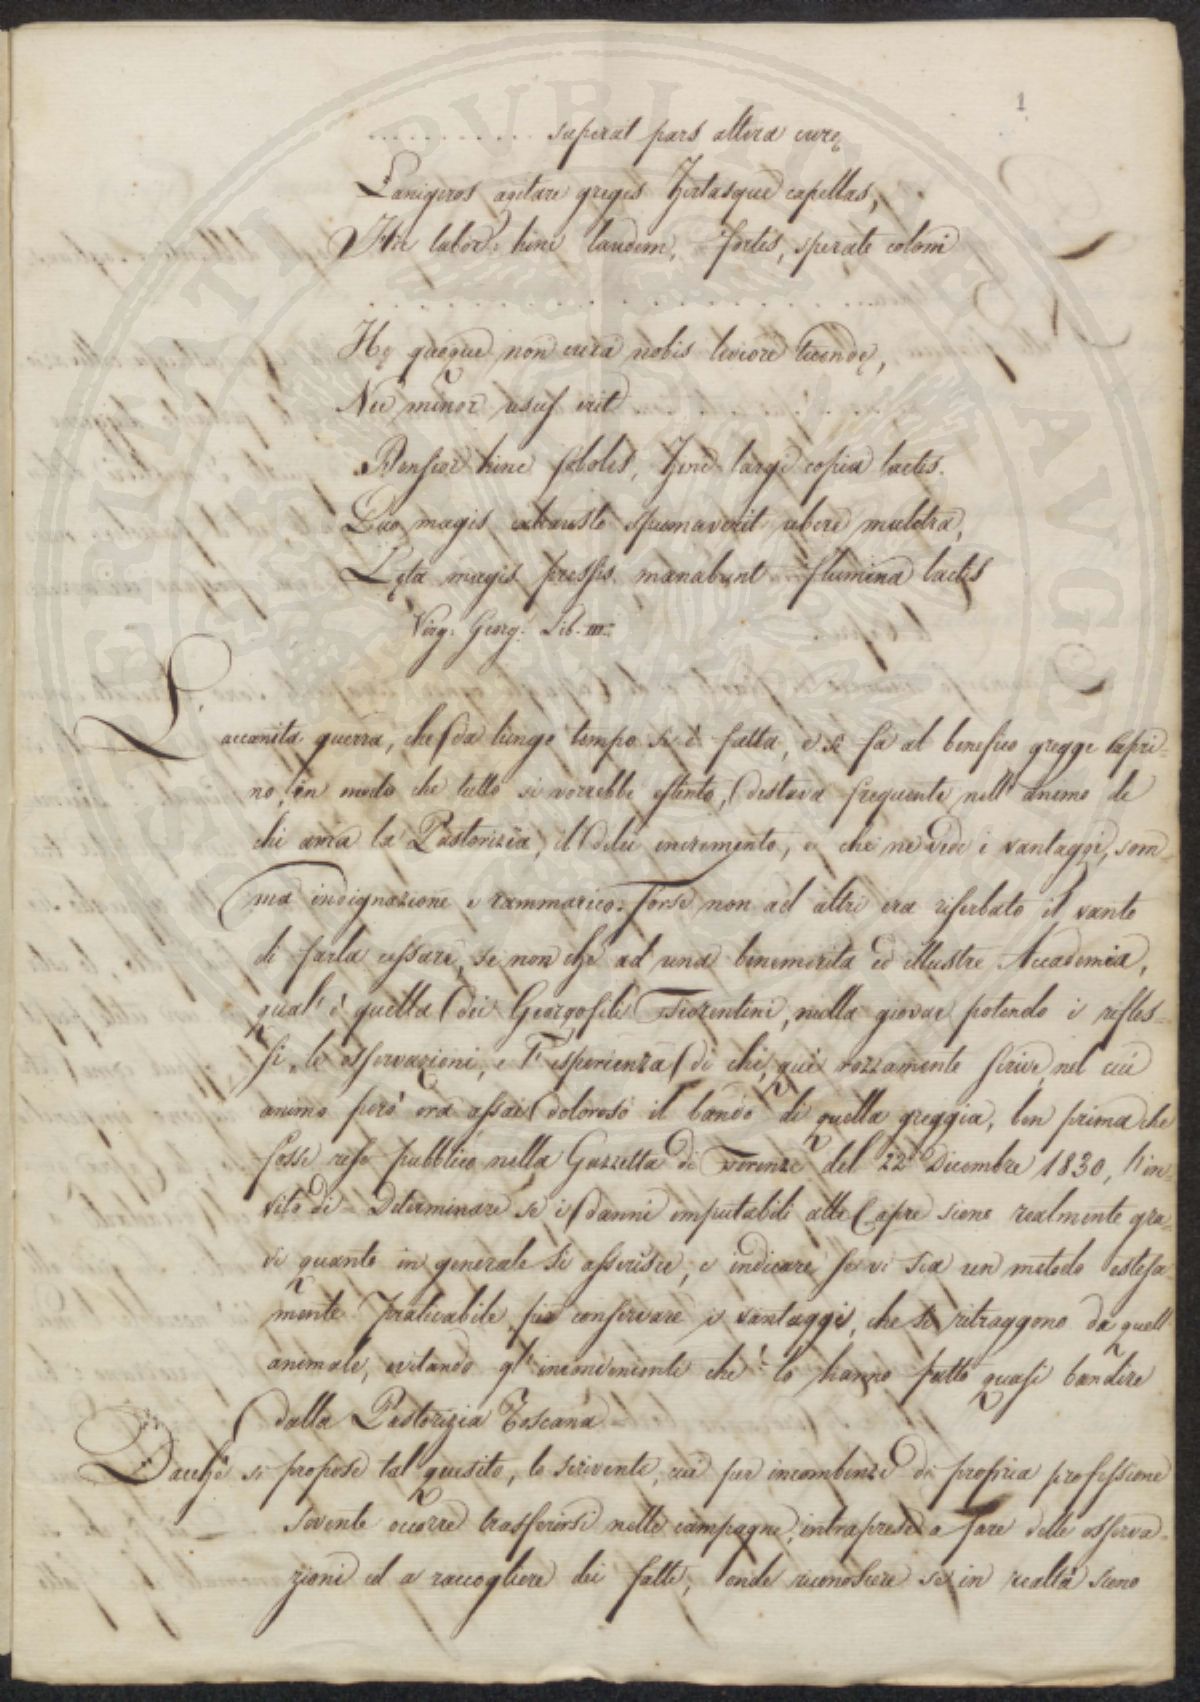 1
. . . . . . . . . . . superat pars altera curę
Lanigeros agitare greges hirtasque capellas,
Hic labor: hinc laudem, fortes, sperate coloni
. . . . . . . . . . . . . . . . . . . .
Hę quoque non cura nobis leviore tuendę,
Nec minor usus erit . . . . . . . . . .
Densior hinc soboles, hinc largi copia lactis.
Quo magis exhausto spumaverit ubere mulctra,
Lęta magis pressis manabunt flumina lactis
Virg: Georg: Lib. III.
L'accanita guerra, che da lungo tempo si è fatta, e si fa al benefico gregge capri-
no, in modo che tutto si vorrebbe estinto, destava frequente nell'animo di
chi ama la Pastorizia, il dilei incremento, e che ne vede i vantaggi, som-
ma indignazione e rammarico. Forse non ad altri era riserbato il vanto
di farla cessare, se non che ad una benemerita ed illustre Accademia,
qual'è quella dei Georgofili Fiorentini, nulla giovar potendo i rifles-
si, le osservazioni, e l'esperienza di chi quì rozzamente scrive, nel cui
animo però era assai doloroso il bando di quella greggia, ben prima che
fosse reso pubblico nella Gazzetta di Firenze del 22 Dicembre 1830, l'in-
vito di Determinare se i danni imputabili alle Capre siene realmente gra-
vi quanto in generale si asserisce, e indicare se vi sia un metodo estesa
mente praticabile per conservare i vantaggi, che si ritraggono da quell
animale, evitando gl'inconvenienti che lo hanno fatto quasi bandire
dalla Pastorizia Toscana
Dacchè si propose tal quesito, lo scrivente, cui per incombenze di propria professione
sovente occorre trasferirsi nelle campagne, intraprese a fare delle osserva-
zioni ed a raccogliere dei fatti, onde riconoscere se in realtà sieno
PERIVATI PVBLICA AVGE